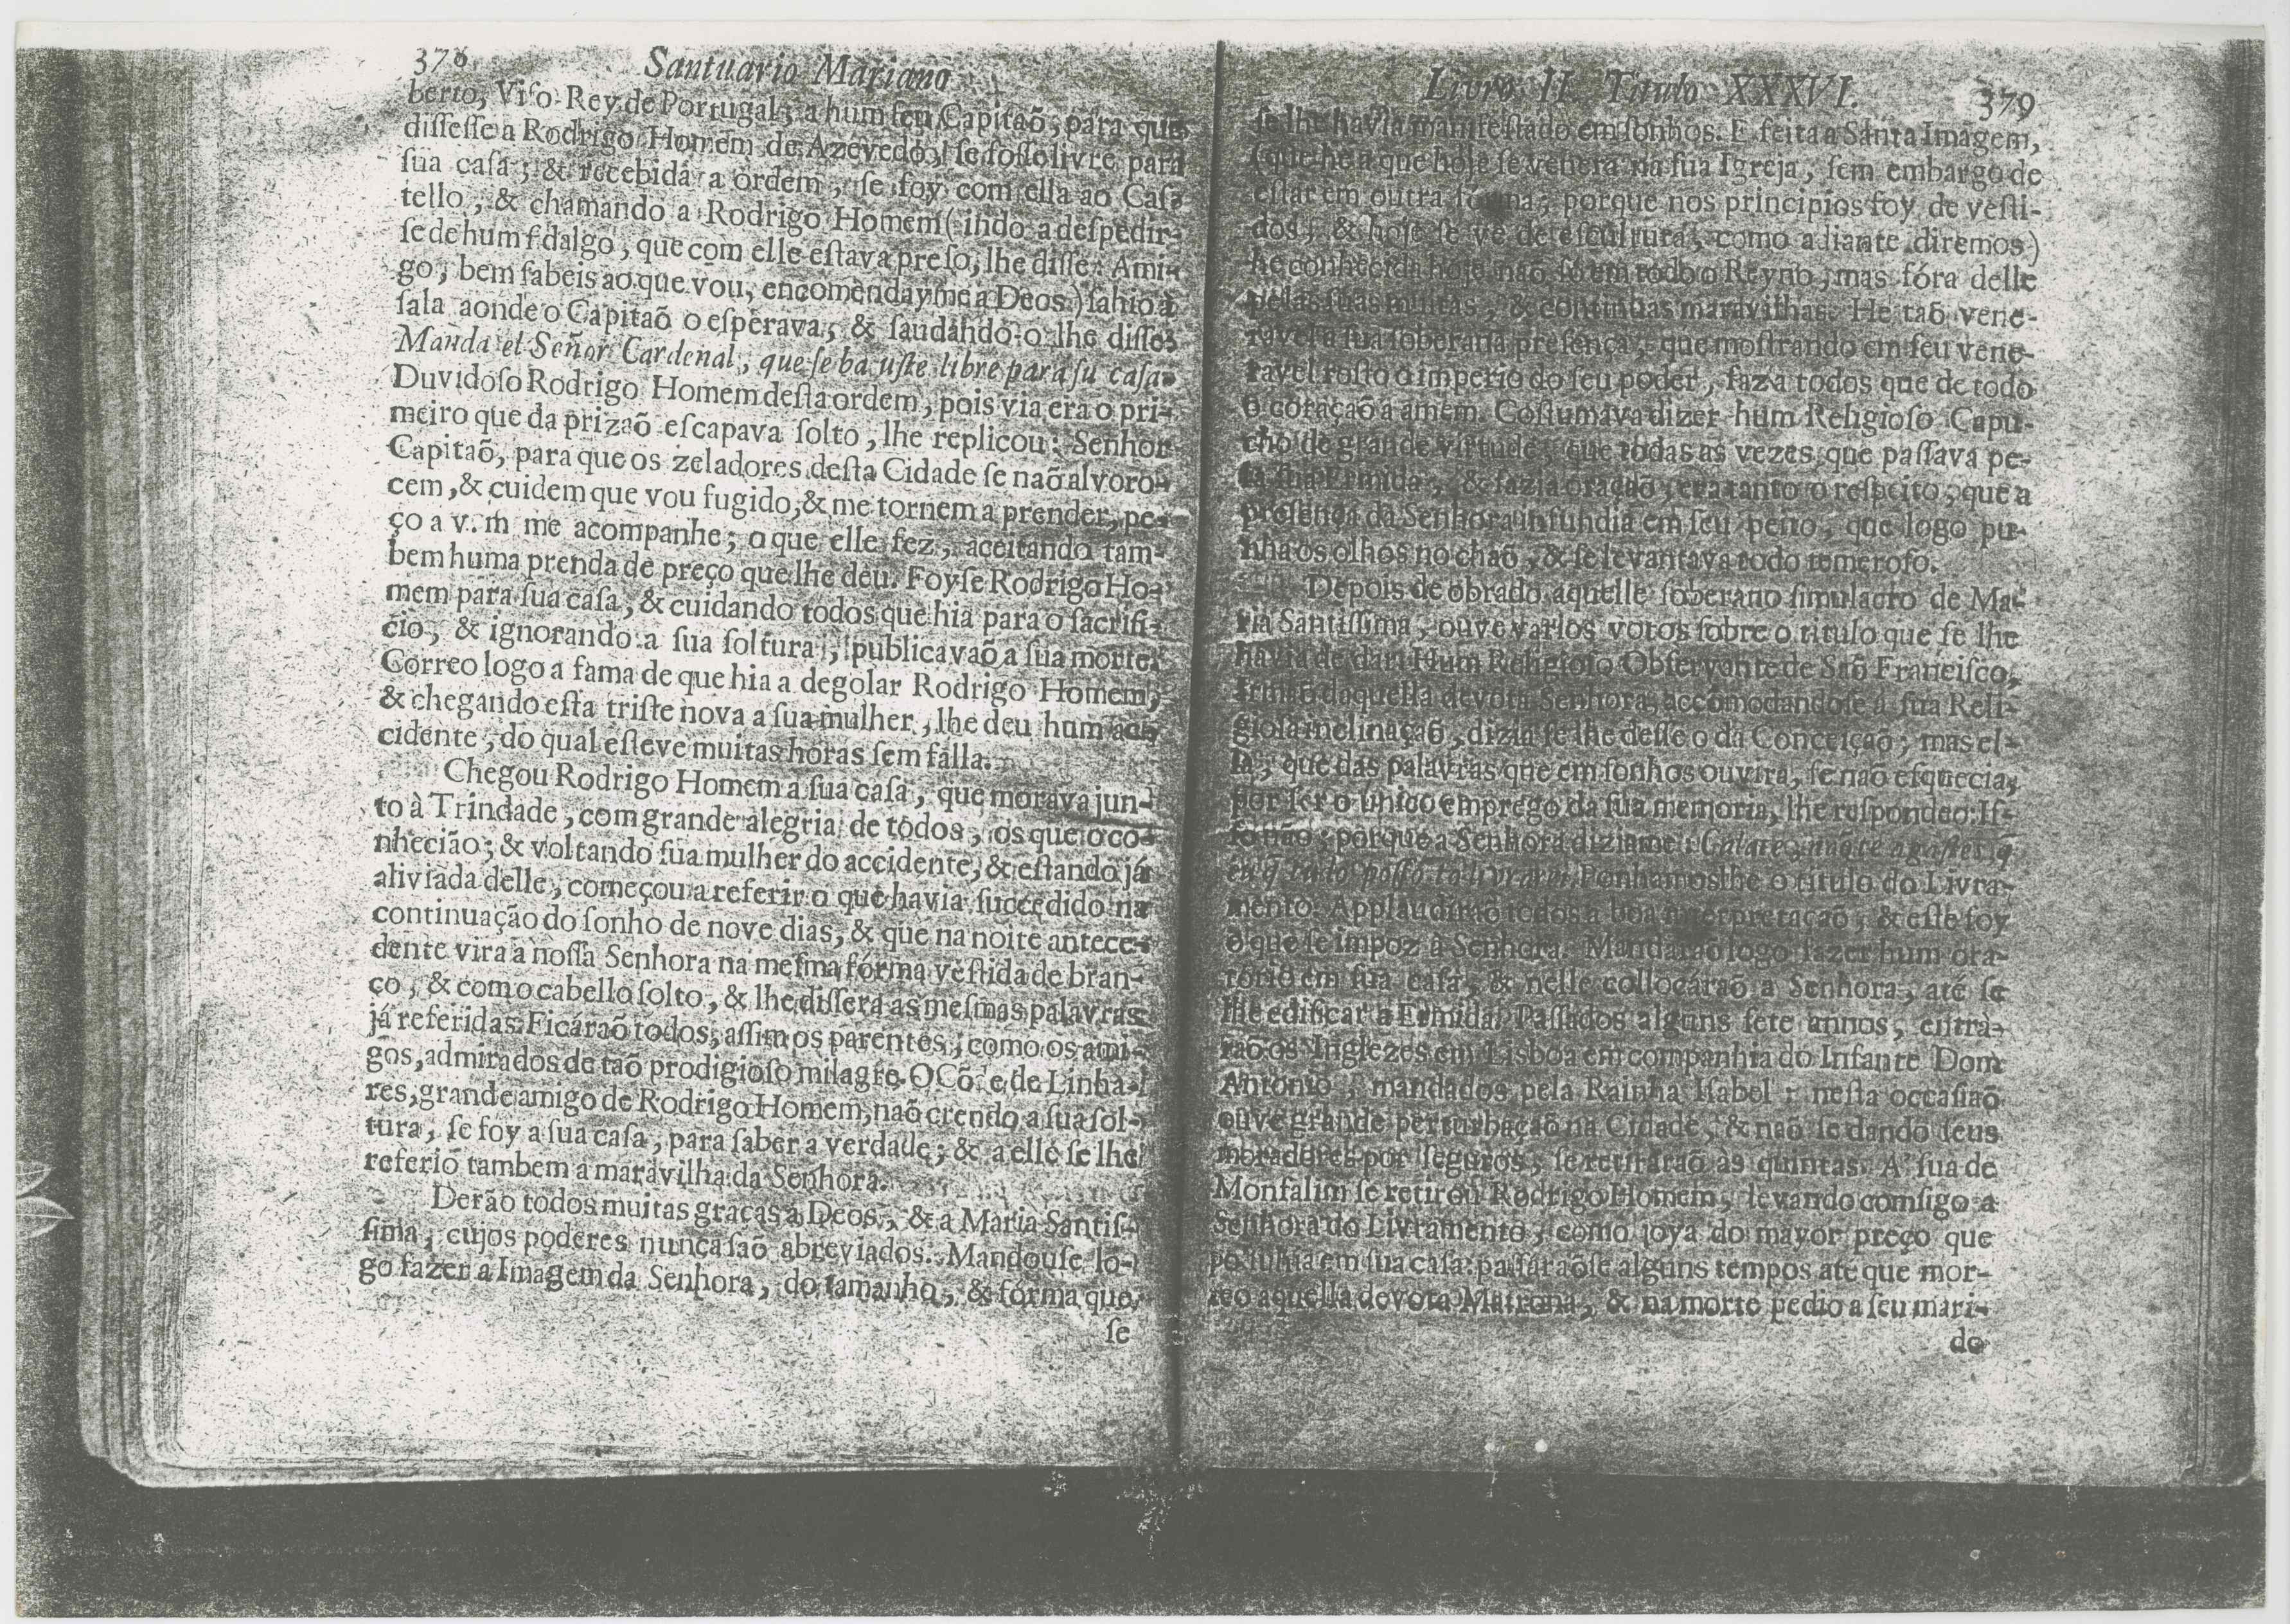 378 Santuario Mariano
berto, Viſo-Rey de Portugal, a hum ſeu Capitaõ, para que
diſſeſſe a Rodrigo Homem de Azevedo, ſe foſſe livre para
ſua caſa; & recebida a ordem, ſe foy com ella ao Caſ-
tello, & chamando a Rodrigo Homem (indo a deſpedir-
ſe de hum fidalgo, que com elle eſtava preſo, lhe diſſe: Ami-
go, bem ſabeis ao que vou, encomendayme a Deos) ſahio à
ſala aonde o Capitaõ o eſperava, & ſaudando-o lhe diſſe:
Manda el Señor Cardenal, que ſe ba uſte libre para ſu caſa.
Duvidoſo Rodrigo Homem deſta ordem, pois via era o pri-
meiro que da prizaõ eſcapava ſolto, lhe replicou: Senhor
Capitaõ, para que os zeladores deſta Cidade ſe naõ alvoro-
cem, & cuidem que vou fugido, & me tornem a prender, pe-
ço a v. m me acompanhe; o que elle fez, aceitando tam-
bem huma prenda de preço que lhe deu. Foyſe Rodrigo Ho-
mem para ſua caſa, & cuidando todos que hia para o ſacrifi-
cio, & ignorando a ſua ſoltura, publicavaõ a ſua morte.
Correo logo a fama de que hia a degolar Rodrigo Homem,
& chegando eſta triſte nova a ſua mulher, lhe deu hum ac-
cidente, do qual eſteve muitas horas ſem falla.
Chegou Rodrigo Homem a ſua caſa, que morava jun-
to à Trindade, com grande alegria de todos, os que o co-
nhecião; & voltando ſua mulher do accidente, & eſtando já
aliviada delle, começou a referir o que havia ſuccedido na
continuação do ſonho de nove dias, & que na noite antece-
dente vira a noſſa Senhora na meſma fórma veſtida de bran-
co, & com o cabello ſolto, & lhe diſſera as meſmas palavras
já referidas. Ficáraõ todos, aſſim os parentes, como os ami-
gos, admirados de taõ prodigioſo milagre. O Cõde de Linha-
res, grande amigo de Rodrigo Homem, naõ crendo a ſua ſol-
tura, ſe foy a ſua caſa, para ſaber a verdade; & a elle ſe lhe
referio tambem a maravilha da Senhora.
Derão todos muitas graças a Deos, & a Maria Santiſ-
ſima, cujos poderes nunca ſaõ abreviados. Mandouſe lo-
go fazer a Imagem da Senhora, do tamanho, & fórma que
ſe
Livro II. Titulo XXXVI. 379
ſe lhe havia manifeſtado em ſonhos. E feita a Santa Imagem,
(que he a que hoje ſe venera na ſua Igreja, ſem embargo de
eſtar em outra fórma; porque nos principios foy de veſti-
dos, & hoje ſe vê de eſcultura, como adiante diremos)
he conhecida hoje naõ ſó em todo o Reyno, mas fóra delle
pelas ſuas muitas, & continuas maravilhas. He taõ vene-
ravel a ſua ſoberana preſença, que moſtrando em ſeu vene-
ravel roſto o imperio do ſeu poder, faz a todos que de todo
o coraçaõ a amem. Coſtumava dizer hum Religioſo Capu-
cho de grande virtude, que todas as vezes, que paſſava pe-
la ſua Ermida, & fazia oraçaõ, era tanto o reſpeito, que a
preſença da Senhora infundia em ſeu peito, que logo pu-
nha os olhos no chaõ, & ſe levantava todo temeroſo.
Depois de obrado aquelle ſoberano ſimulacro de Ma-
ria Santiſſima, ouve varios votos ſobre o titulo que ſe lhe
havia de dar. Hum Religioſo Obſervante de Saõ Franciſco,
Irmaõ daquella devota Senhora, accõmodandoſe à ſua Reli-
gioſa inclinaçaõ, dizia ſe lhe deſſe o da Conceiçaõ; mas el-
la, que das palavras que em ſonhos ouvira, ſe naõ eſquecia,
por ſer o unico emprego da ſua memoria, lhe reſpondeo: Iſ-
ſo não; porque a Senhora diziame: Calate, não te agaſtes, q̃
eu q̃ tudo poſſo, to livrarei. Ponhamoslhe o titulo do Livra-
mento. Applaudiraõ todos a boa interpretaçaõ, & eſte foy
o que ſe impoz à Senhora. Mandáraõ logo fazer hum ora-
torio em ſua caſa, & nelle collocáraõ a Senhora, até ſe
lhe edificar a Ermida. Paſſados alguns ſete annos, entrá-
raõ os Inglezes em Lisboa em companhia do Infante Dom
Antonio, mandados pela Rainha Iſabel: neſta occaſiaõ
ouve grande perturbaçaõ na Cidade, & naõ ſe dando ſeus
moradores por ſeguros, ſe retiráraõ às quintas. A' ſua de
Monfalim ſe retirou Rodrigo Homem, levando comſigo a
Senhora do Livramento, como joya do mayor preço que
poſſuhia em ſua caſa: paſſáraõſe alguns tempos até que mor-
reo aquella devota Matrona, & na morte pedio a ſeu mari-
do